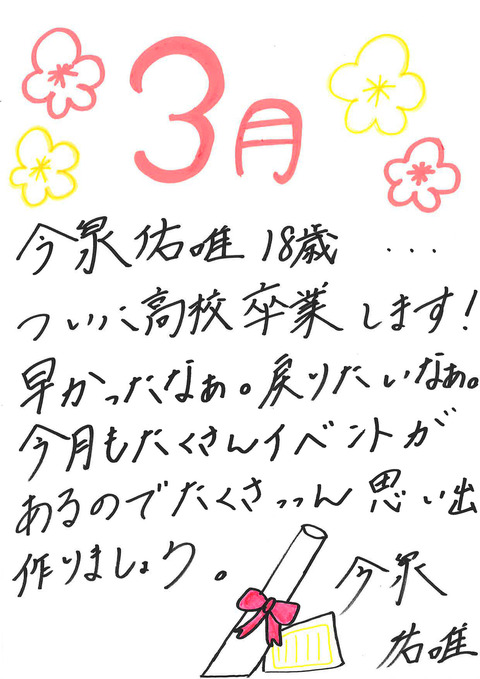 3月
今泉佑唯 18歳 ...
ついに高校卒業します!
早かったなぁ。戻りたいなぁ。
今月もたくさんイベントが
あるのでたくさっっん思い出
作りましょう。
今泉
佑唯